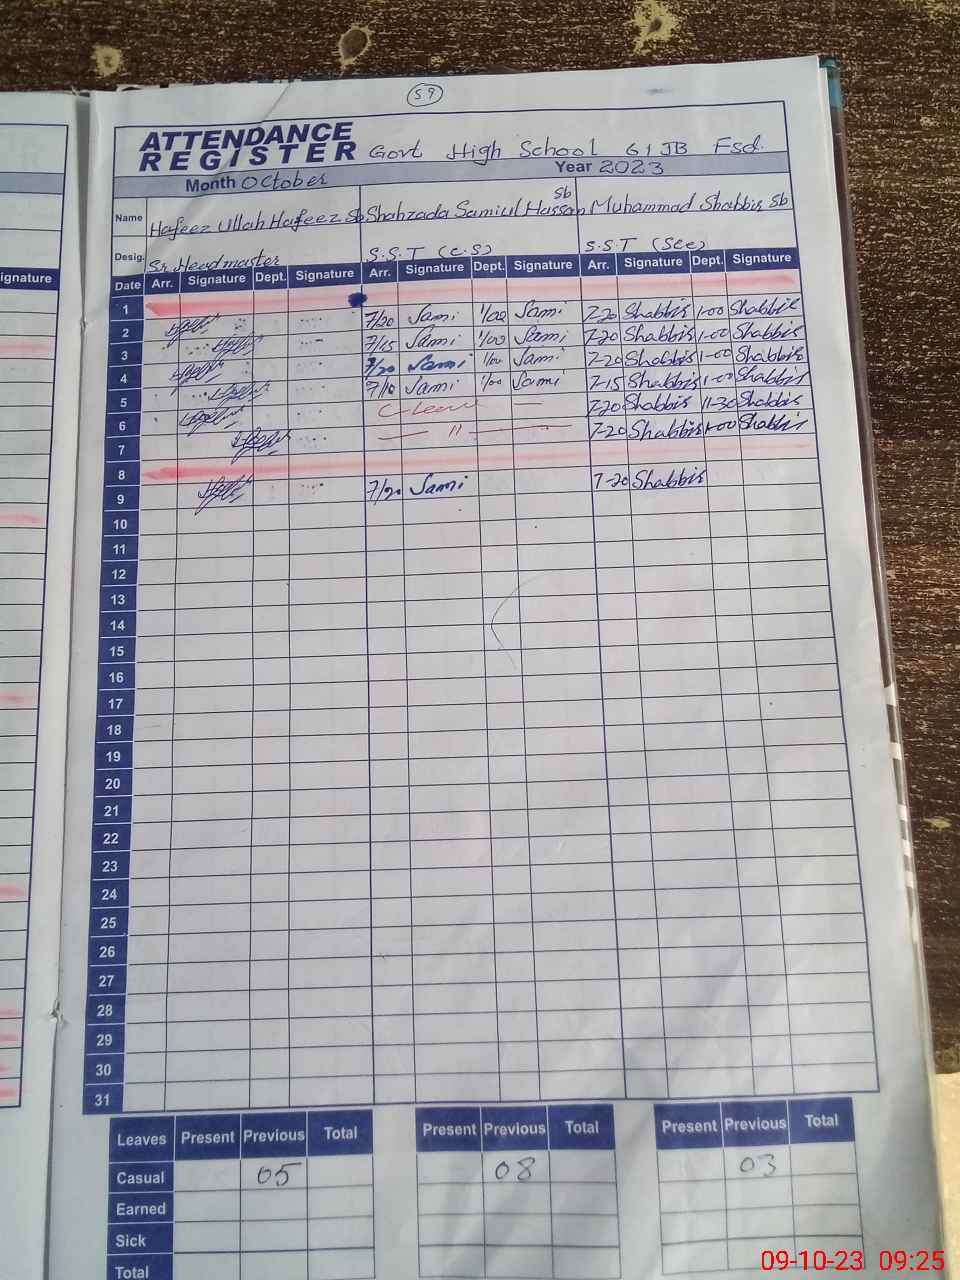 59
ATTENDANCE
REGISTER Govt High School 61JB Fsd.
Month October Year 2023
Name Hafeez Ullah Hafeez Sb Shahzada Samiul Hassan Sb Muhammad Shabbir Sb
Desig. Sr. Headmaster S.S.T (C.S) S.S.T (Sce)
ignature
Date Arr. Signature Dept. Signature Arr. Signature Dept. Signature Arr. Signature Dept. Signature
1
2 7/20 Sami 1/00 Sami 7-20 Shabbir 1-00 Shabbir
3 7/15 Sami 1/00 Sami 7-20 Shabbir 1-00 Shabbir
4 7/20 Sami 1/00 Sami 7-20 Shabbir 1-00 Shabbir
5 7/10 Sami 1/00 Sami 7-15 Shabbir 1-00 Shabbir
6 C-Leave — 7-20 Shabbir 11-30 Shabbir
7 — 11 — 7-20 Shabbir 1-00 Shabbir
8
9 7/20 Sami 7-20 Shabbir
10
11
12
13
14
15
16
17
18
19
20
21
22
23
24
25
26
27
28
29
30
31
Leaves Present Previous Total Present Previous Total Present Previous Total
Casual 05 08 03
Earned
Sick
Total
09-10-23 09:25